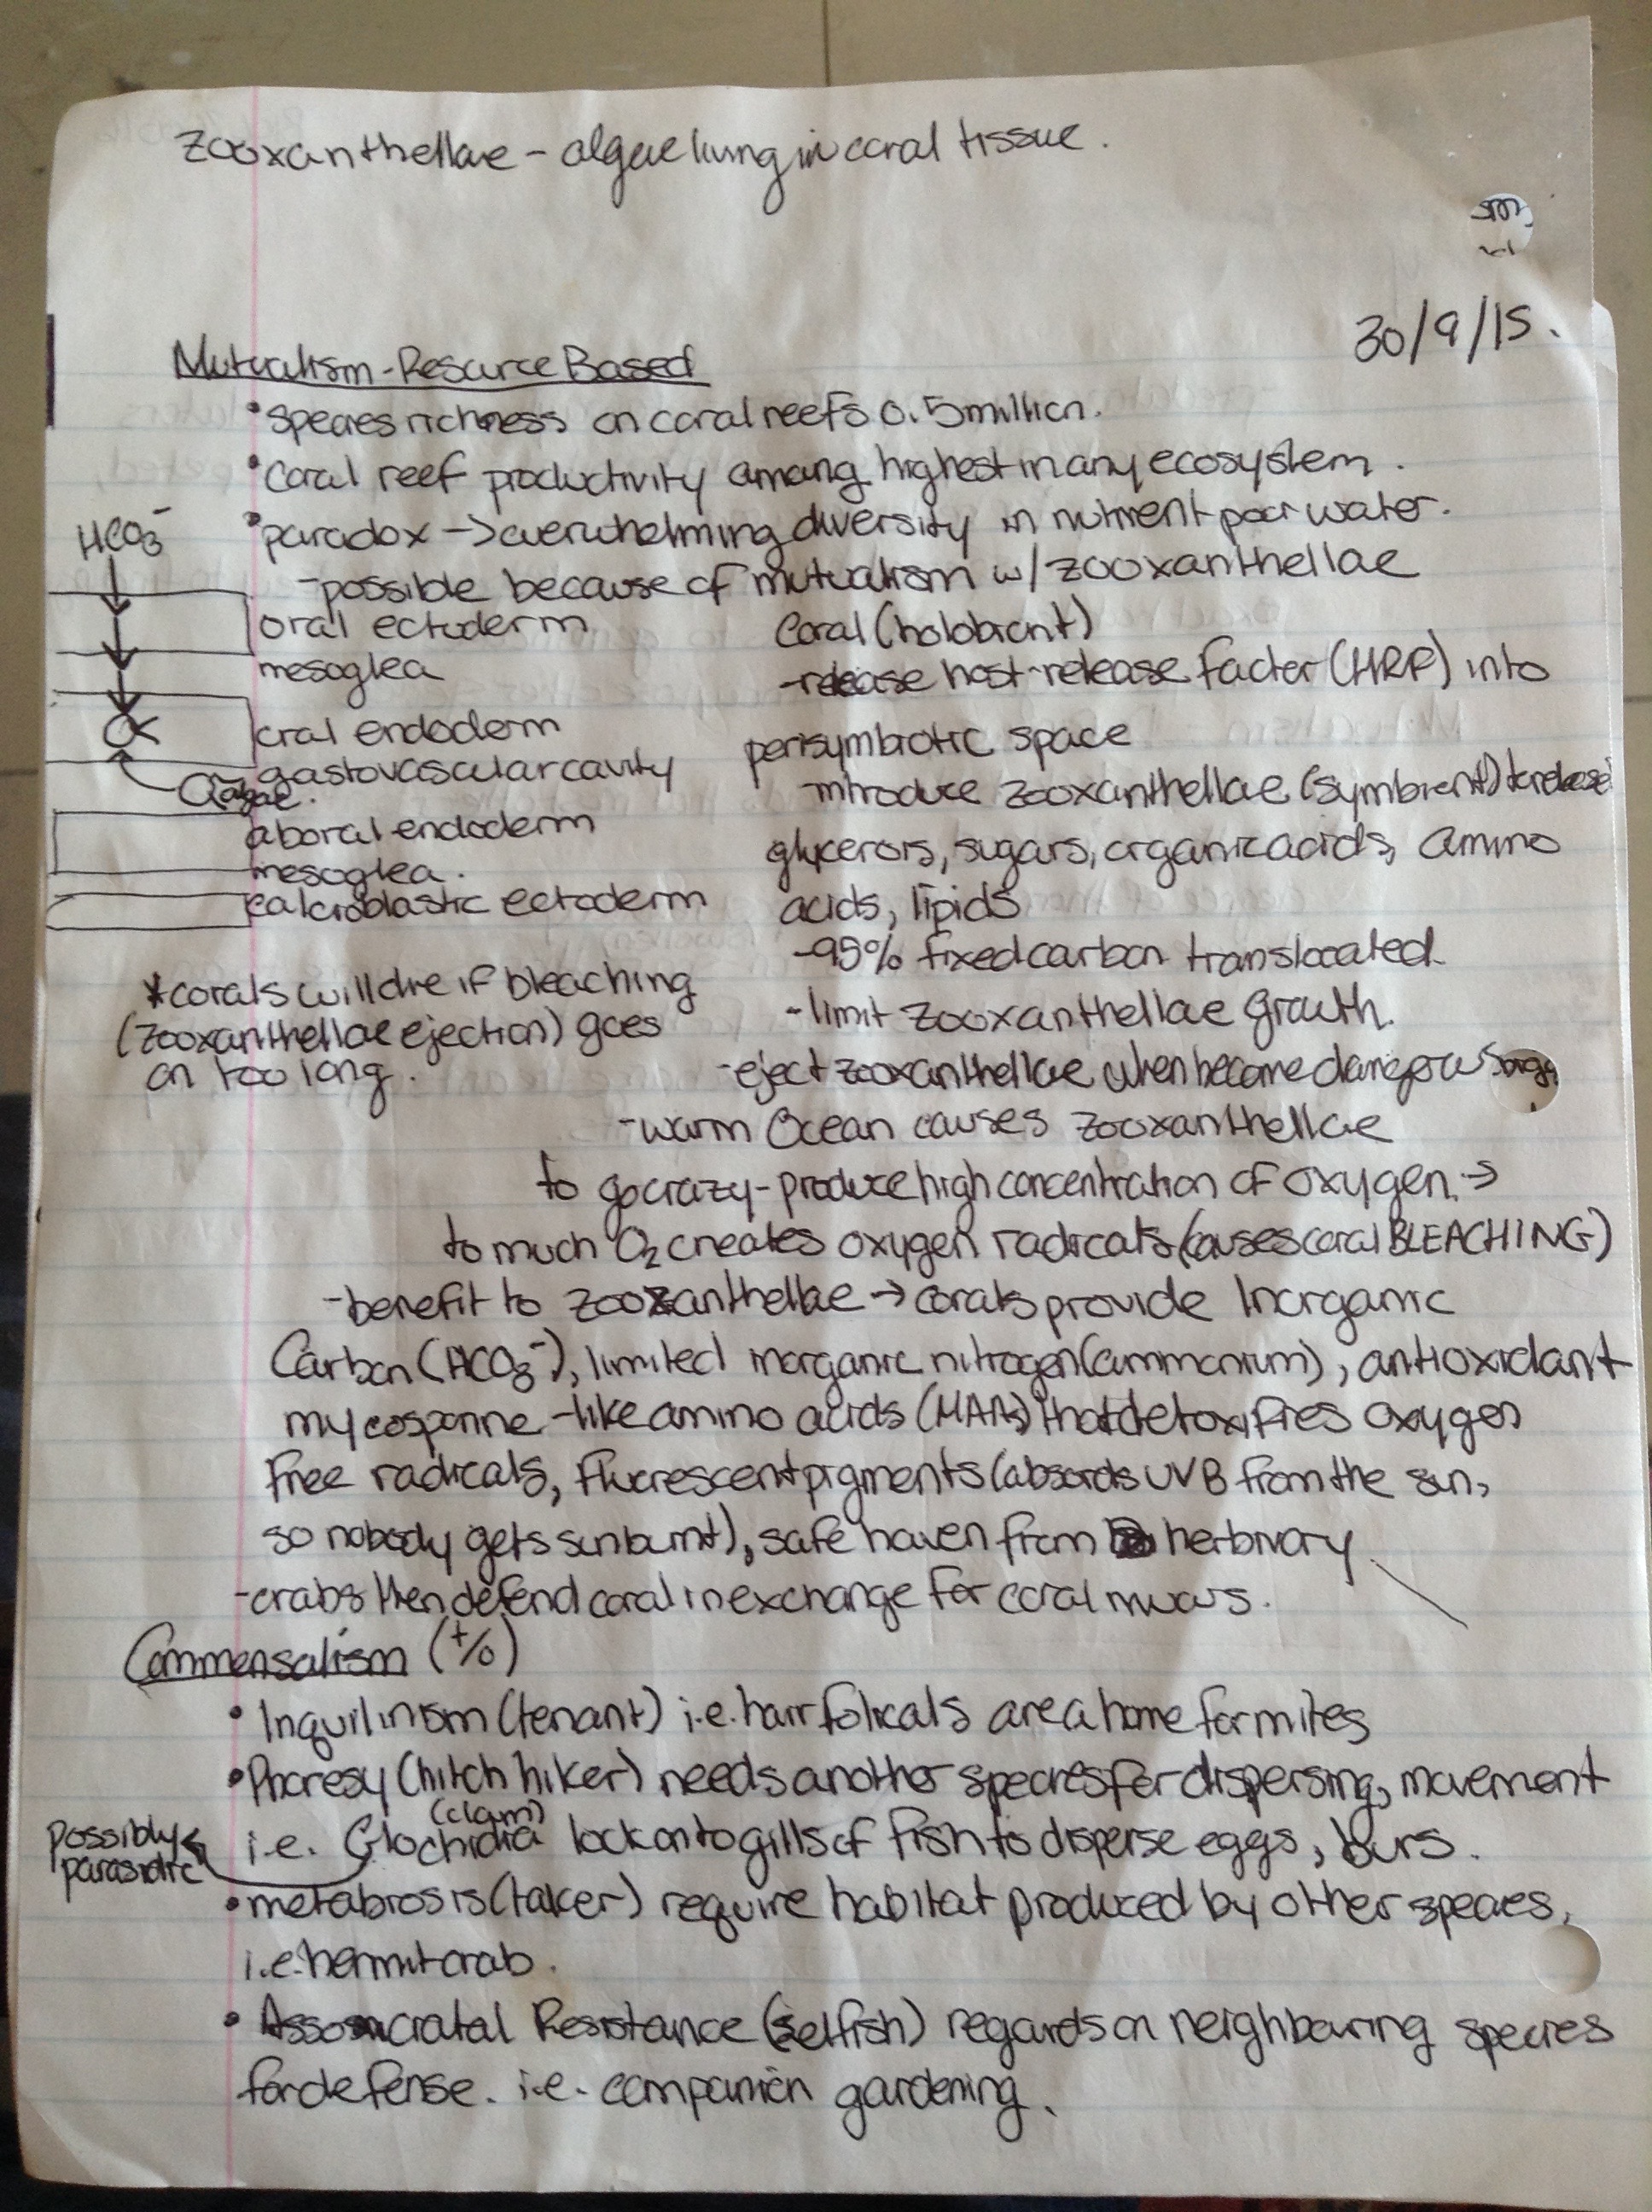 Zooxanthellae - algae living in coral tissue.
30/9/15.
Mutualism - Resource Based
• species richness on coral reefs 0.5 million.
• Coral reef productivity among highest in any ecosystem.
• paradox → overwhelming diversity in nutrient poor water.
- possible because of mutualism w/ zooxanthellae
HCO3-
oral ectoderm
mesoglea
oral endoderm
gastovascular cavity
algae.
aboral endoderm
mesoglea.
calcioblastic ectoderm
* corals will die if bleaching
(zooxanthellae ejection) goes
on too long.
Coral (holobiont)
- release host-release factor (HRF) into
perisymbiotic space
- introduce zooxanthellae (symbiont) to release
glycerols, sugars, organic acids, amino
acids, lipids
- 95% fixed carbon translocated.
- limit zooxanthellae growth.
- eject zooxanthellae when become dangerous
- warm Ocean causes zooxanthellae
to go crazy - produce high concentration of oxygen. →
to much O2 creates oxygen radicals (causes coral BLEACHING)
- benefit to zooxanthellae → corals provide Inorganic
Carbon (HCO3-), limited inorganic nitrogen (ammonium), antioxidant
mycosporine-like amino acids (MAAs) that detoxifies oxygen
free radicals, fluorescent pigments (absords UVB from the sun,
so nobody gets sunburnt), safe haven from herbivory
- crabs then defend coral in exchange for coral mucus.
Commensalism (+/0)
• Inquilinism (tenant) i.e. hair folicals are a home for mites
• Phoresy (hitch hiker) needs another species for dispersing, movement
(clam)
i.e. Glochidia lock onto gills of fish to disperse eggs, burs.
possibly
parasidic
• metabiosis (taker) require habitat produced by other species,
i.e. hermit crab.
• Associatal Resistance (selfish) regards on neighbouring species
for defense. i.e. companion gardening.